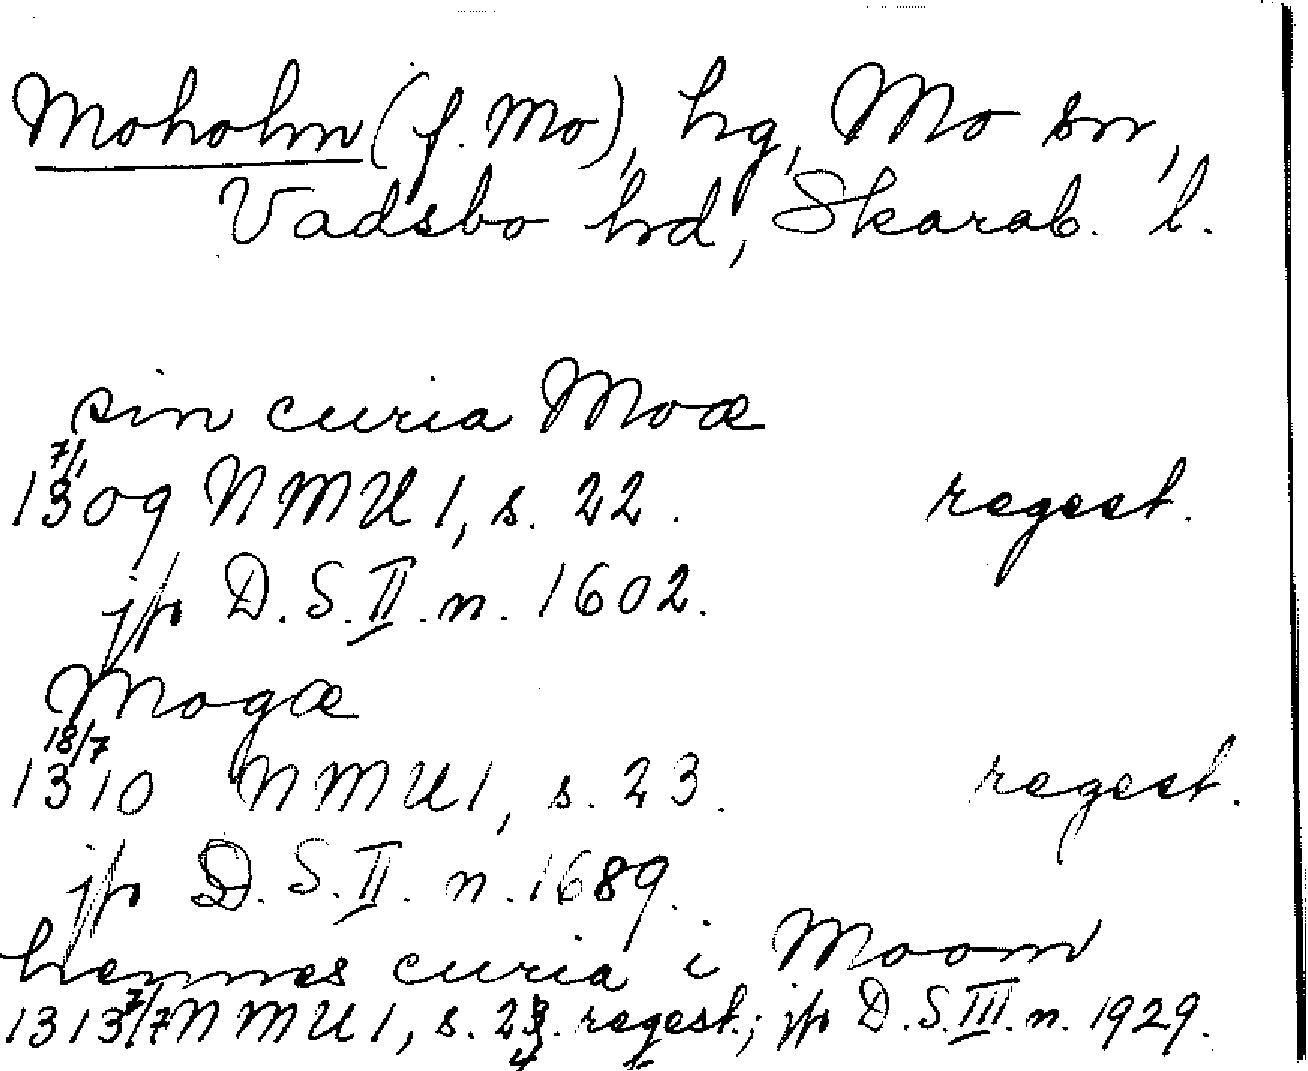 Moholm (f. Mo), hg, Mo sn,
Vadsbo hd, Skarab. l.
sin curia Moæ
7/1
1309 NMU 1, s. 22. regest.
jfr D.S. II. n. 1602.
Mogæ
18/7
1310 NMU 1, s. 23. regest.
jfr D.S. II. n. 1689.
hennes curia i Moom
1313 7/7 NMU 1, s. 23. regest.; jfr D.S. III. n. 1929.